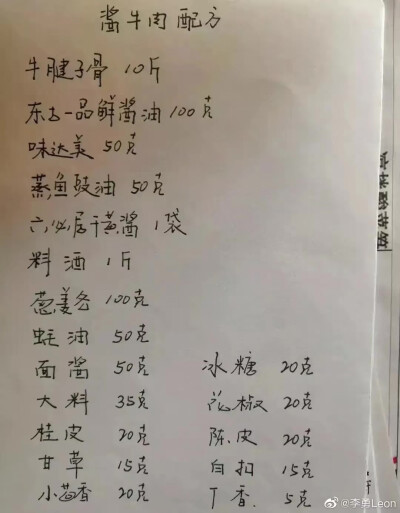 酱牛肉配方
牛腱子骨 10斤
东古一品鲜酱油100克
味达美 50克
蒸鱼豉油 50克
六必居干黄酱 1袋
料酒 1斤
葱姜各 100克
蚝油 50克
面酱 50克 冰糖 20克
大料 35克 花椒 20克
桂皮 20克 陈皮 20克
甘草 15克 白扣 15克
小茴香 20克 丁香 5克
@李勇Leon